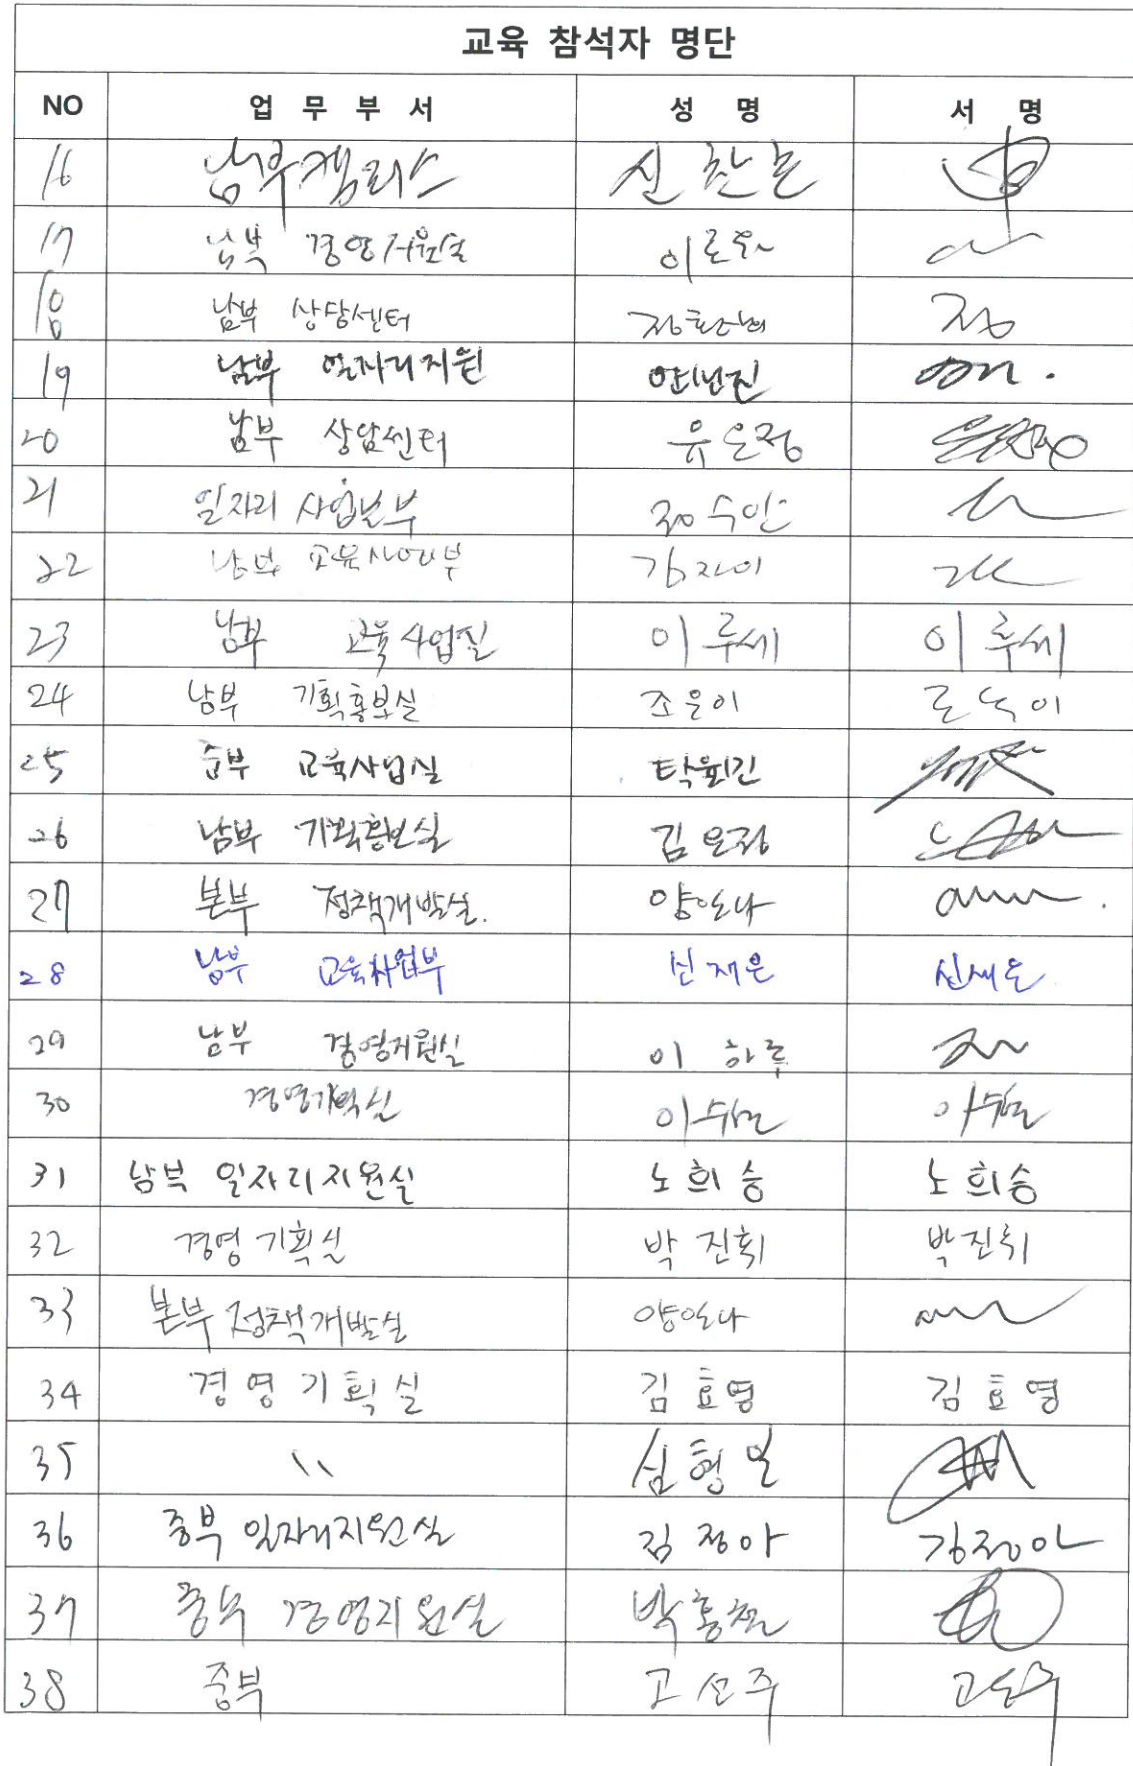 교육 참석자 명단
NO 업 무 부 서 성 명 서 명
16 남부캠퍼스 신찬호
17 남부 경영지원실
18 남부 상담센터
19 남부 일자리지원
20 남부 상담센터 유은정
21 일자리 사업본부 정수안
22 남부 교육사업부 김자이
23 남부 교육사업실 이루세 이루세
24 남부 기획홍보실 조운이
25 중부 교육사업실
26 남부 기획홍보실 김은정
27 본부 정책개발실. 양안나
28 남부 교육사업부 신재은 신재은
29 남부 경영지원실 이 하루
30 경영기획실
31 남부 일자리지원실 노희승 노희승
32 경영기획실 박진휘 박진휘
33 본부 정책개발실 양안나
34 경영기획실 김효영 김효영
35 〃 심형보
36 중부 일자리지원실 김정아 김정아
37 중부 경영지원실 박홍철
38 중부 고선주 고선주